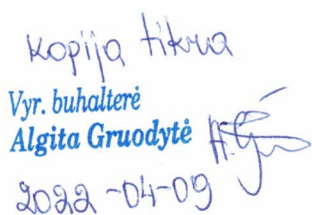 Kopija tikra
Vyr. buhalterė
Algita Gruodytė
2022-04-09